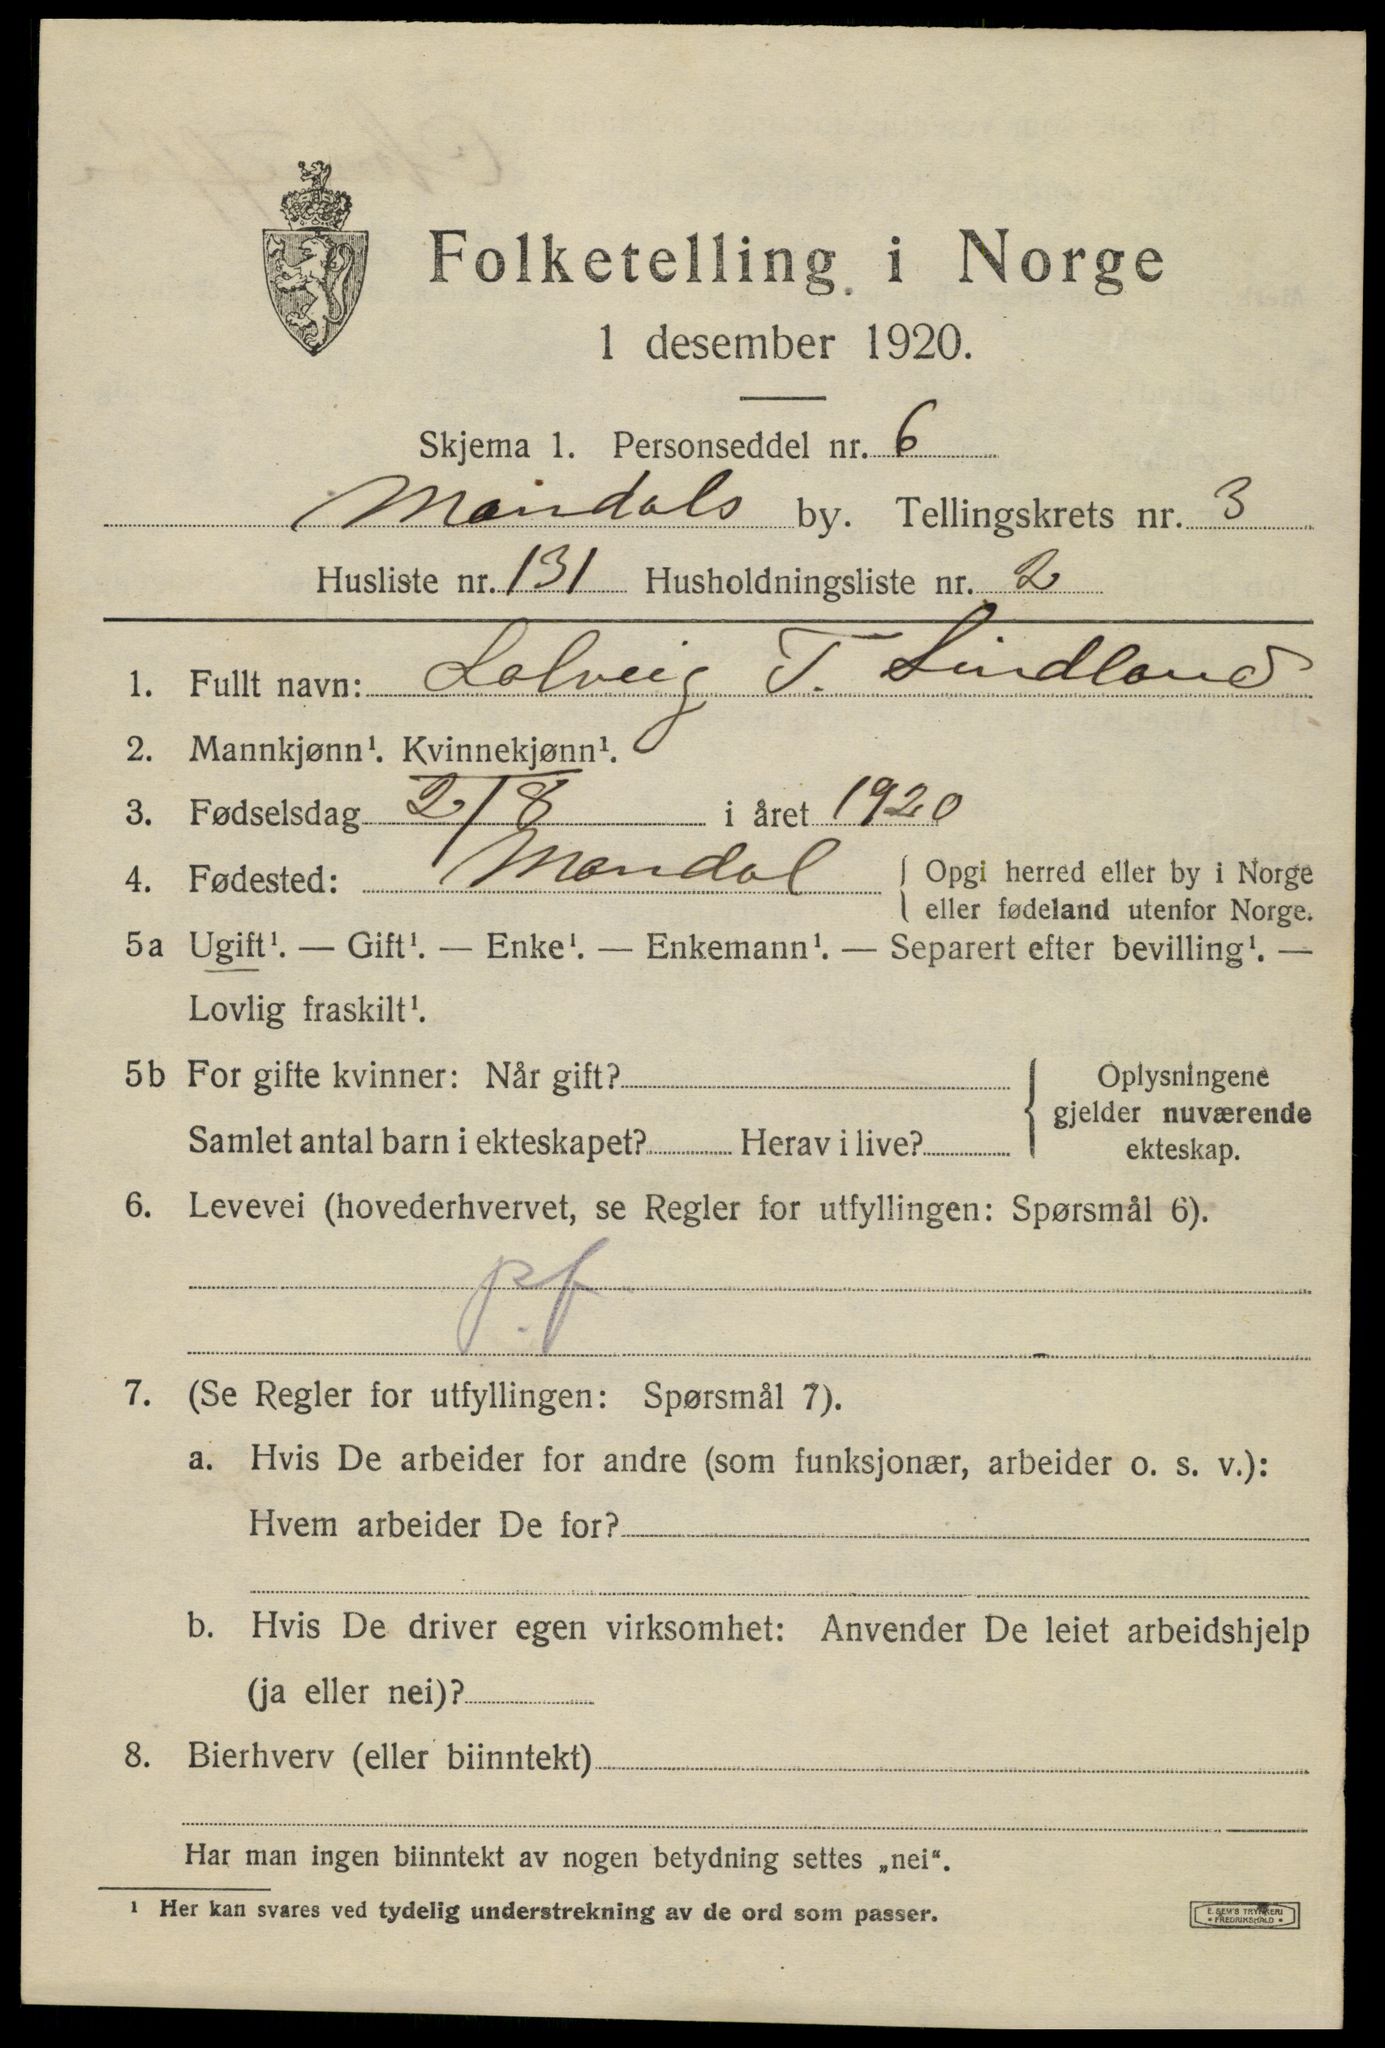 Folketelling i Norge
1 desember 1920.
Skjema 1. Personseddel nr. 6
Mandals by. Tellingskrets nr. 3
Husliste nr. 131 Husholdningsliste nr. 2
1. Fullt navn: Solveig T. Lindland
2. Mannkjønn¹. Kvinnekjønn¹.
3. Fødselsdag 2/8 i året 1920
4. Fødested: Mandal { Opgi herred eller by i Norge
eller fødeland utenfor Norge.
5a Ugift¹. — Gift¹. — Enke¹. — Enkemann¹. — Separert efter bevilling¹. —
Lovlig fraskilt¹.
5b For gifte kvinner: Når gift?
Samlet antal barn i ekteskapet? Herav i live?
{ Oplysningene
gjelder nuværende
ekteskap.
6. Levevei (hovederhvervet, se Regler for utfyllingen: Spørsmål 6).
p.f
7. (Se Regler for utfyllingen: Spørsmål 7).
a. Hvis De arbeider for andre (som funksjonær, arbeider o. s. v.):
Hvem arbeider De for?
b. Hvis De driver egen virksomhet: Anvender De leiet arbeidshjelp
(ja eller nei)?
8. Bierhverv (eller biinntekt)
Har man ingen biinntekt av nogen betydning settes „nei“.
¹ Her kan svares ved tydelig understrekning av de ord som passer.
E. SEM'S TRYKKERI
* FREDRIKSHALD *